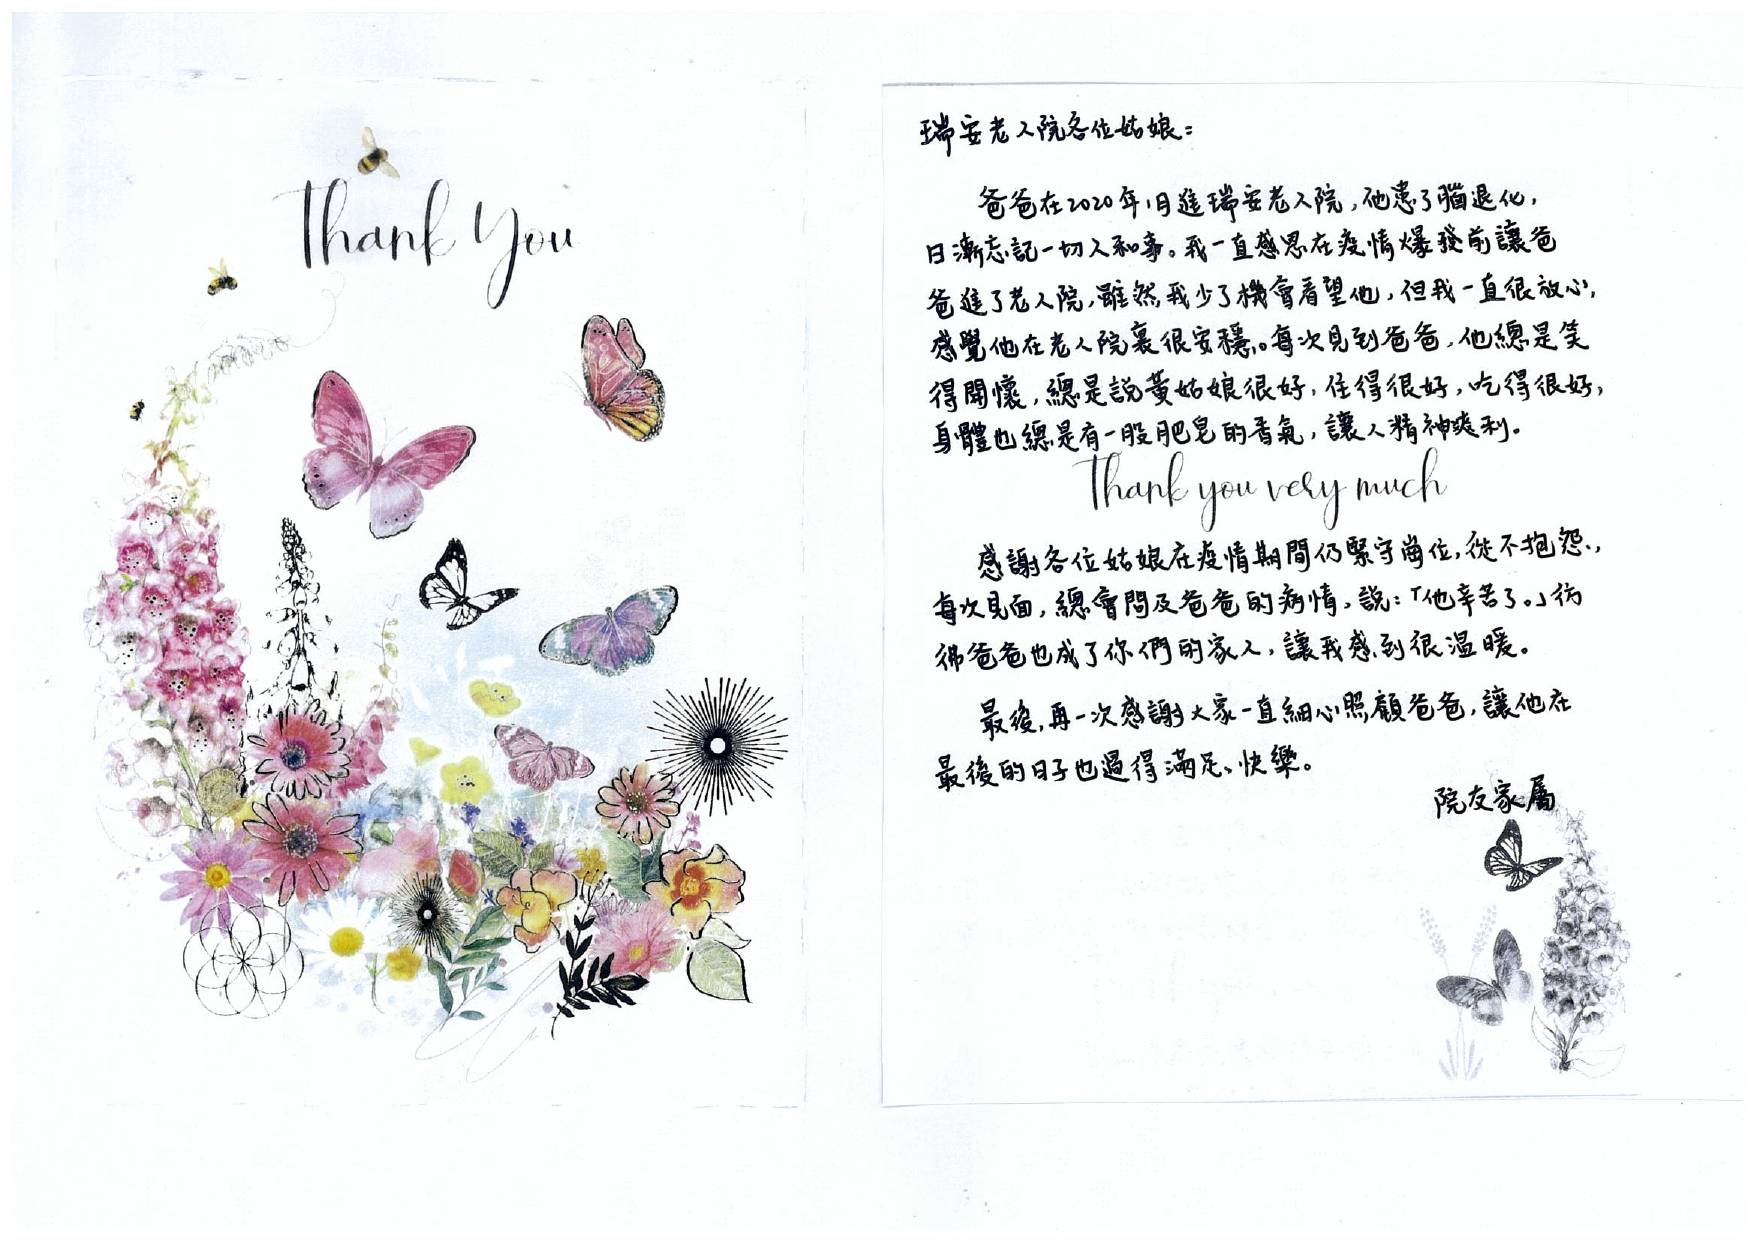 Thank You
瑞安老人院各位姑娘：
爸爸在2020年1月進瑞安老人院，他患了腦退化，
日漸忘記一切人和事。我一直感恩在疫情爆發前讓爸
爸進了老人院，雖然我少了機會看望他，但我一直很放心，
感覺他在老人院裏很安穩。每次見到爸爸，他總是笑
得開懷，總是說黃姑娘很好，住得很好，吃得很好，
身體也總是有一股肥皂的香氣，讓人精神爽利。
Thank you very much
感謝各位姑娘在疫情期間仍緊守崗位，從不抱怨，
每次見面，總會問及爸爸的病情，說：「他辛苦了。」彷
彿爸爸也成了你們的家人，讓我感到很溫暖。
最後，再一次感謝大家一直細心照顧爸爸，讓他在
最後的日子也過得滿足、快樂。
院友家屬